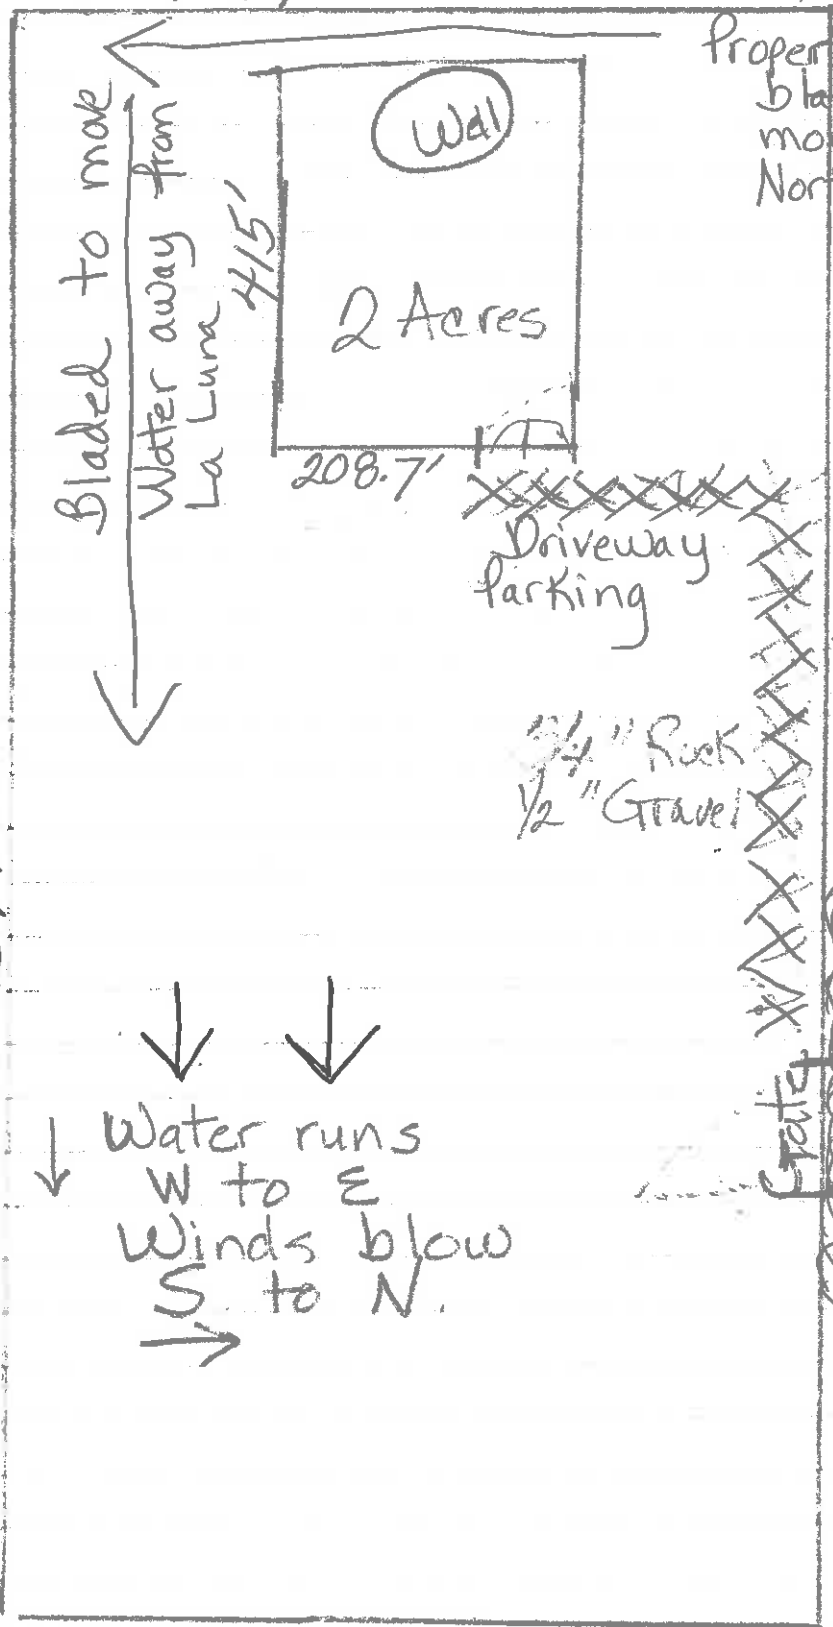 Proper
bla
mo
Nor
Well
Bladed to move
Water away from
La Luna
415'
2 Acres
208.7'
Driveway
Parking
3/4" Rock
1/2" Gravel
Gate
Water runs
W to E
Winds blow
S to N.